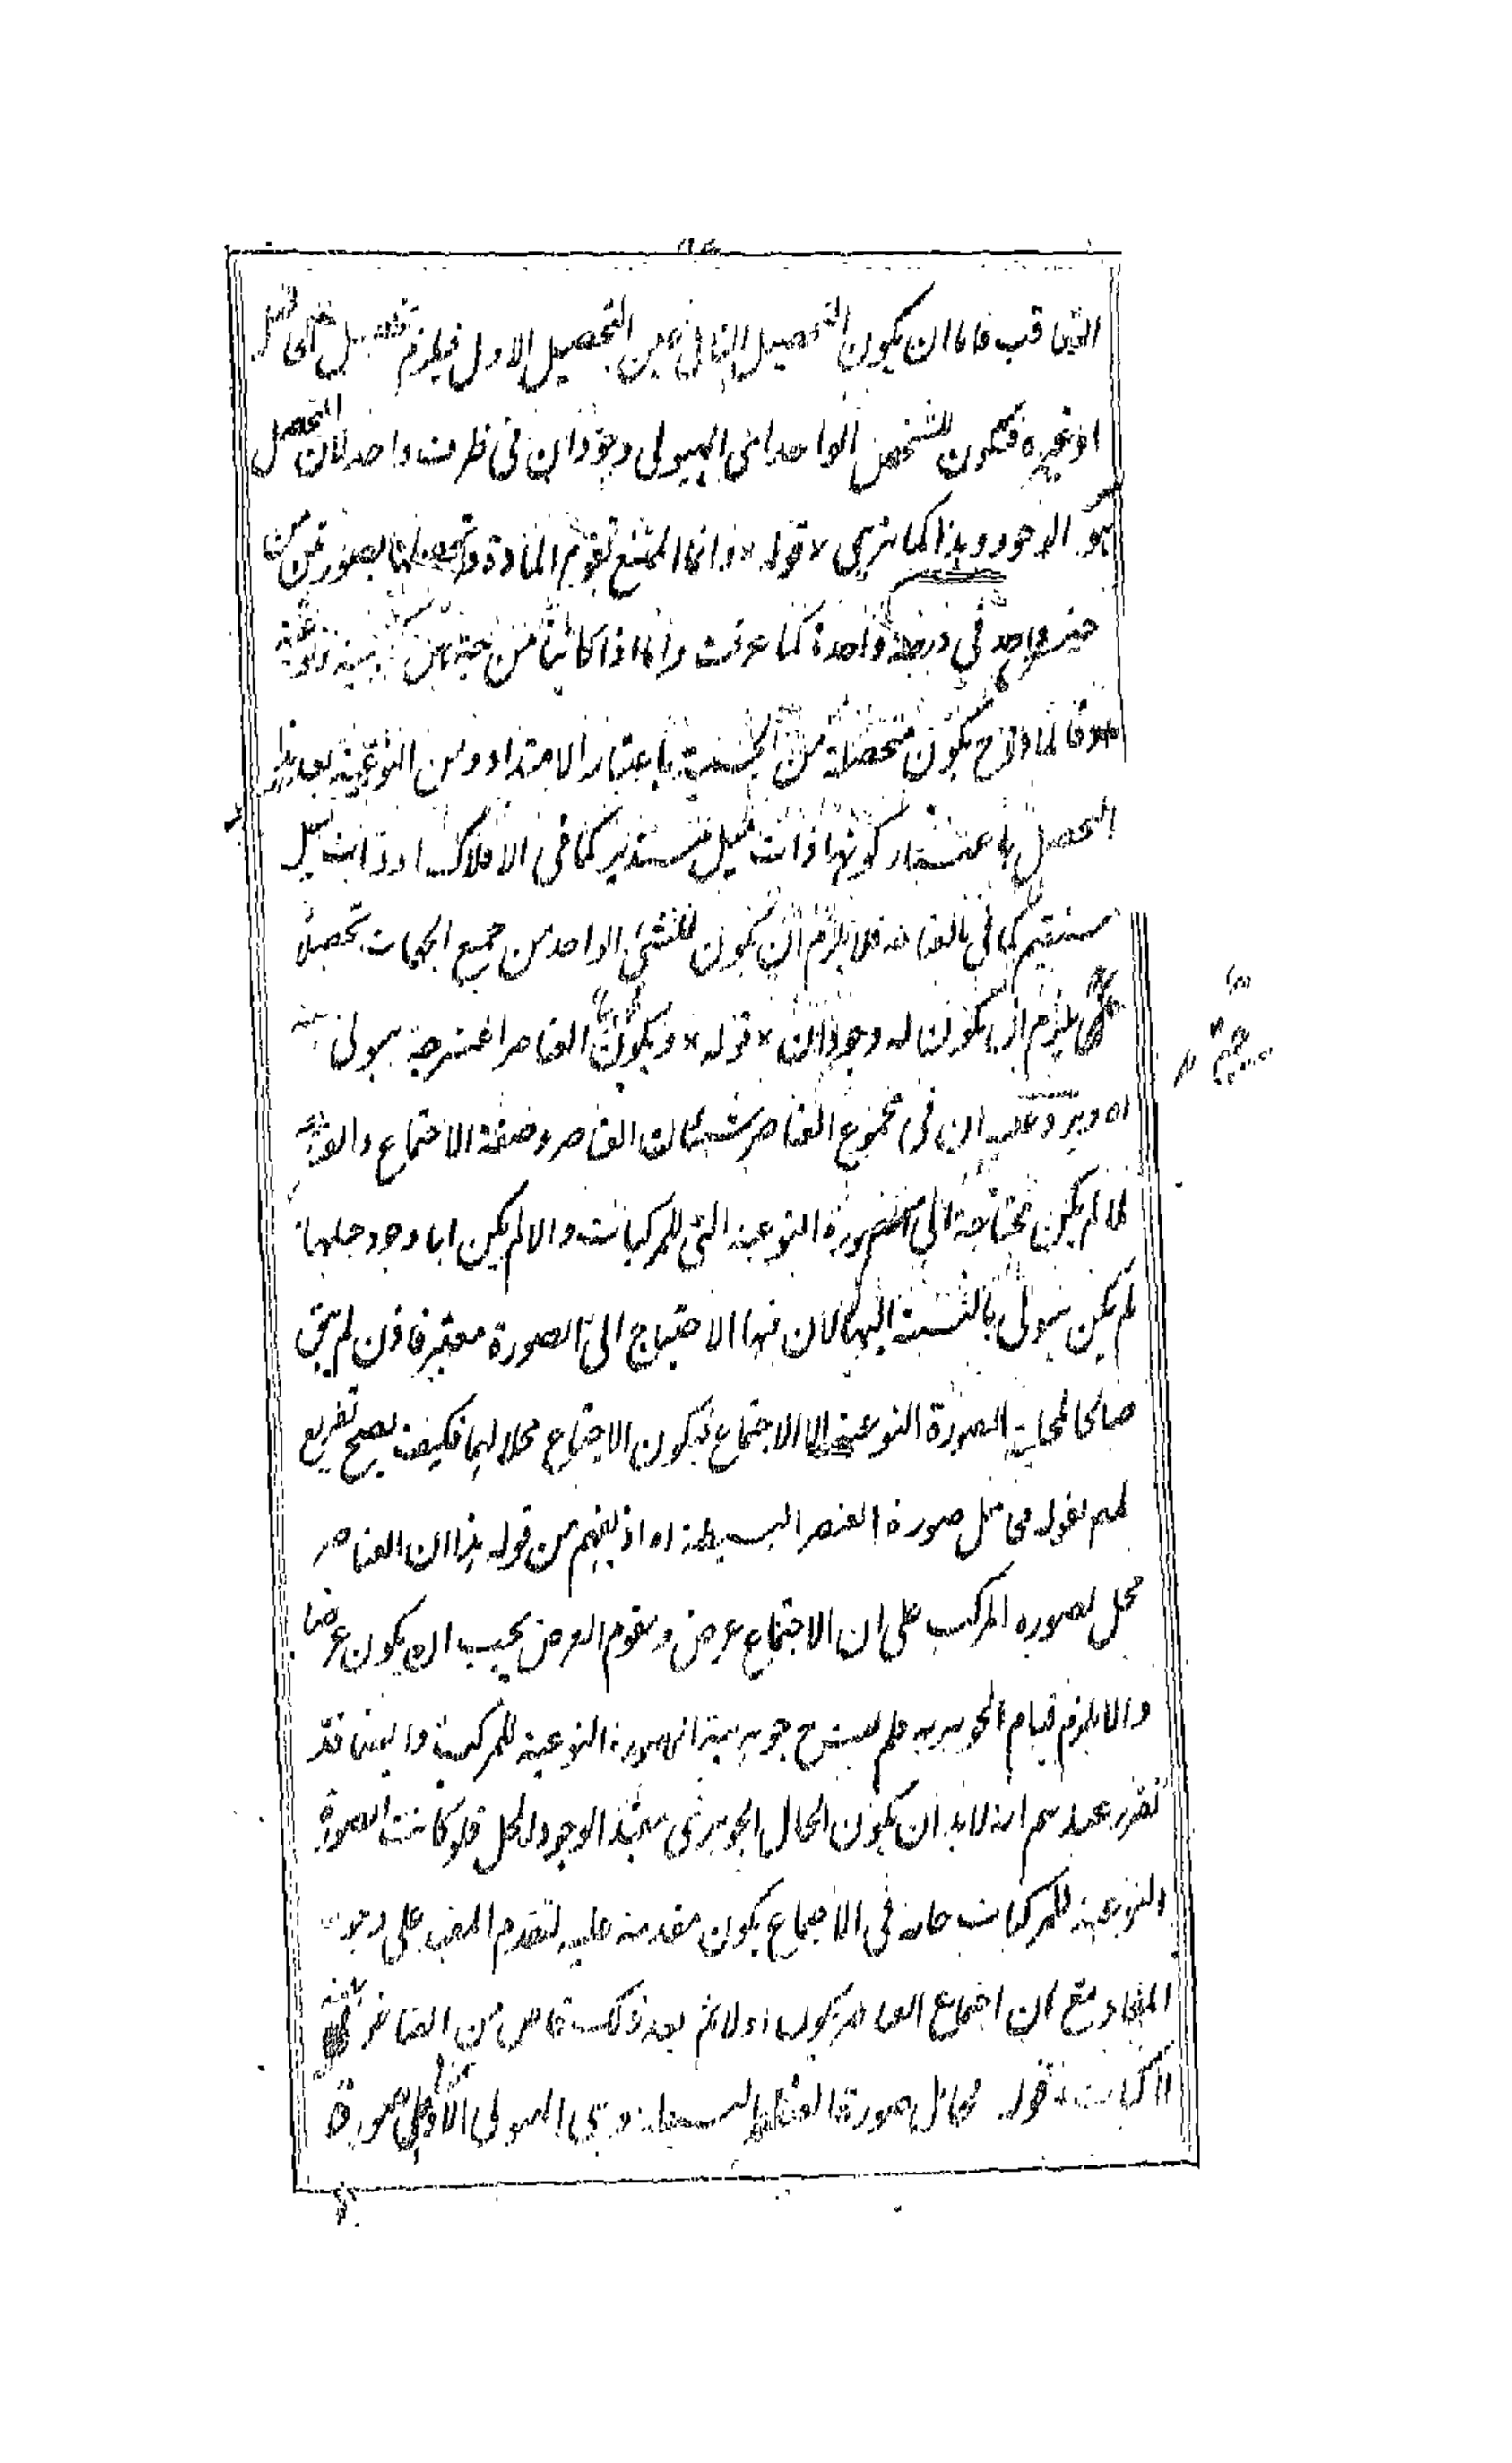 التعاقب فاما ان يكون التحصيل الثانى عين التحصيل الاول فيلزم تحصيل الحاصل
او غيره فيكون للشخص الواحد اى الهيولى وجودان فى ظرف واحد لان التحصل
هو الوجود وهذا كما ترى قوله وانما الممتنع تقوم المادة وتحصلها بصورتين من
واحد فى درجة واحدة كما عرفت واما اذا كانتا من
فالمادة ح يكون متحصلة من الجسمية باعتبار الامتداد ومن النوعية بعد هذا
التحصل باعتبار كونها ذات ميل مستدير كما فى الافلاك او ذات ميل
مستقيم كما فى العناصر فلا يلزم ان يكون للشئ الواحد من جميع الجهات تحصلا
يلزم ان يكون له وجودان قوله ويكون العناصر الممتزجة هيولى
اه ويرد عليه ان فى مجموع العناصر شيئان العناصر وصفة الاجتماع والعناصر
لما لم يكن محتاجة الى الصورة النوعية التى للمركبات والا لم يكن لها وجود
لم يكن هيولى بالنسبة اليها لان فيها الاحتياج الى الصورة معتبر فاذن لم يبق
صالحا لمحلية الصورة النوعية الا الاجتماع فيكون الاجتماع محلا لها فكيف يصح تفريع
بقوله فمحل صورة العنصر البسيطة اه اذ يفهم من قوله هذا ان العناصر
محل لصورة المركب على ان الاجتماع عرض ومقوم العرض يجب ان يكون عرضا
والا يلزم قيام الجوهر به فلم يبق ح جوهرية الصورة النوعية للمركب وايضا قد
تقرر عندهم انه لابد ان يكون الحال الجوهرى مفيد الوجود المحل فلو كانت الصورة
النوعية للمركبات حالة فى الاجتماع يكون مقدمة عليه لتقدم المفيد على وجود
المفاد مع ان اجتماع العناصر يكون اولا ثم بعد ذلك من العناصر
قوله فمحل صورة العنصر البسيطة هى الهيولى الاولى صورة